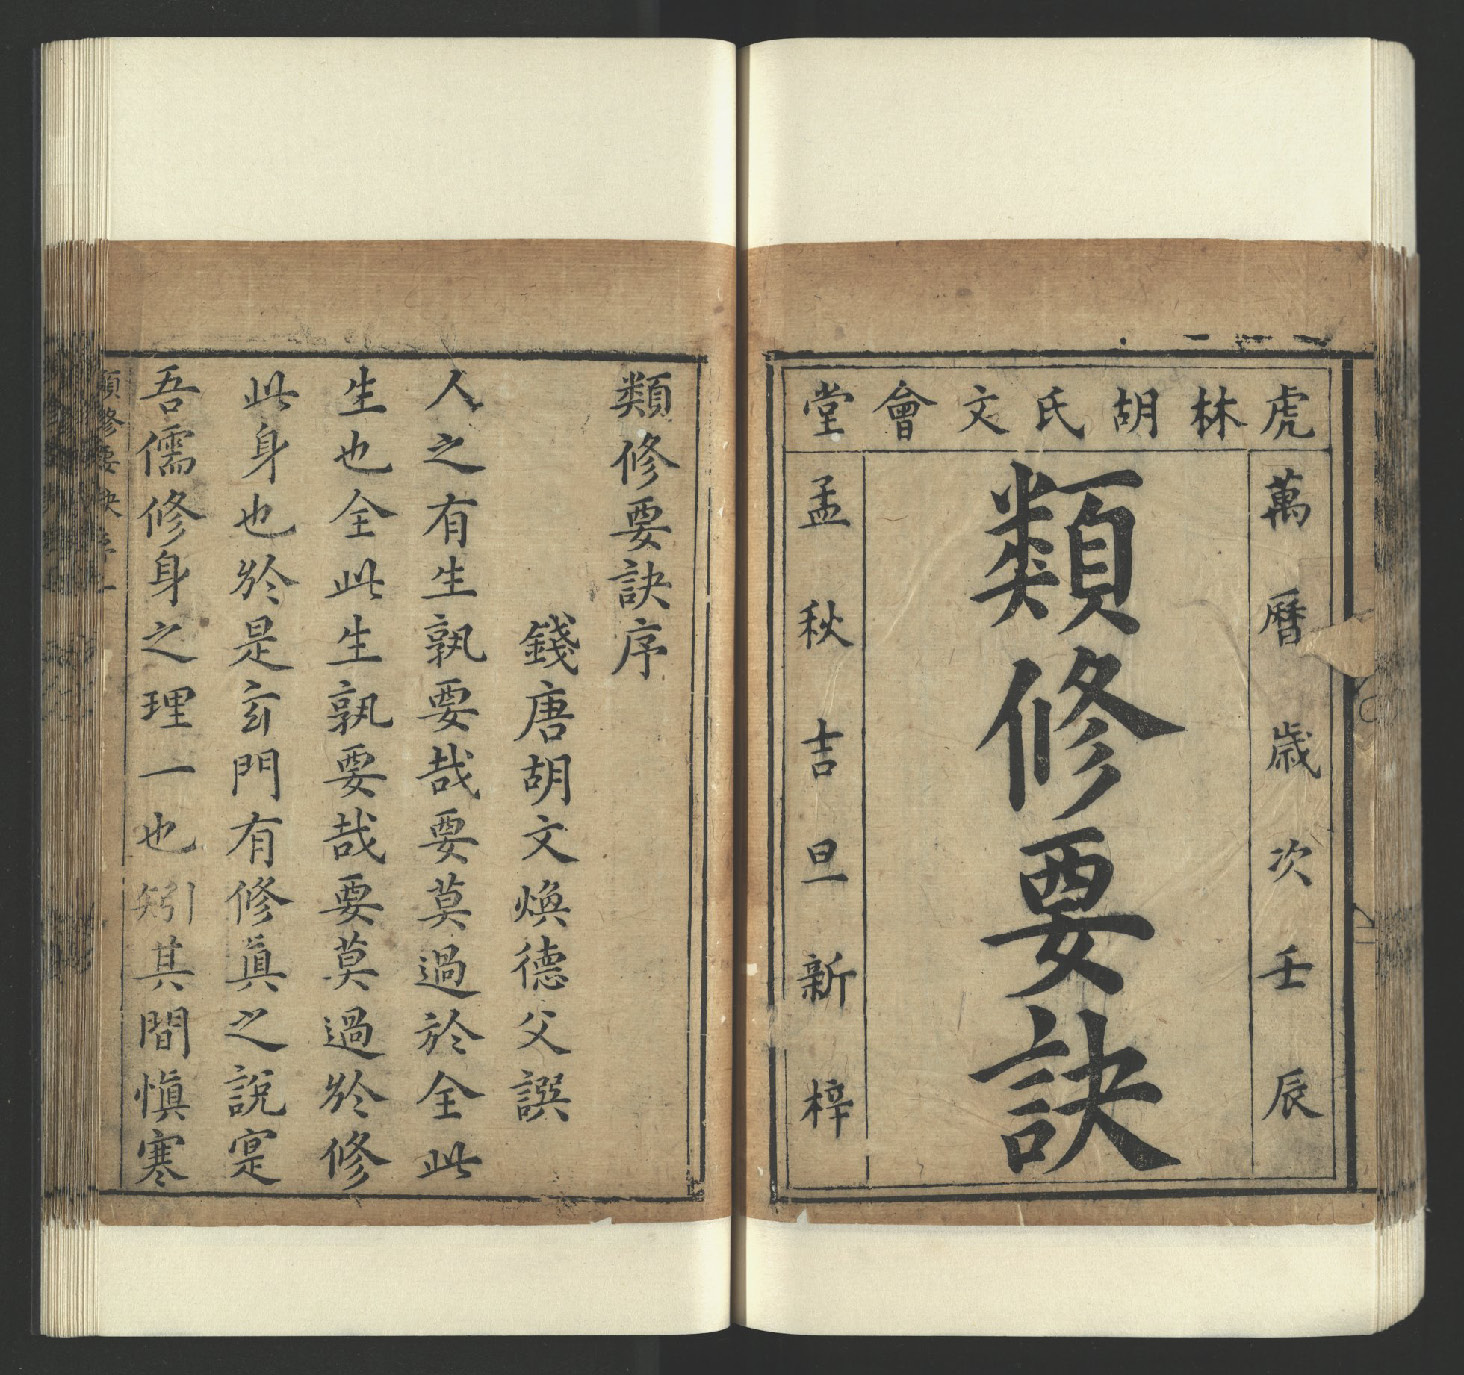 虎林胡氏文會堂
萬曆歲次壬辰
類修要訣
孟秋吉旦新梓
類修要訣序
錢唐胡文煥德父譔
人之有生孰要哉要莫過於全此
生也全此生孰要哉要莫過於修
此身也於是玄門有修眞之說寔
吾儒修身之理一也矧其間愼寒
類修要訣序一